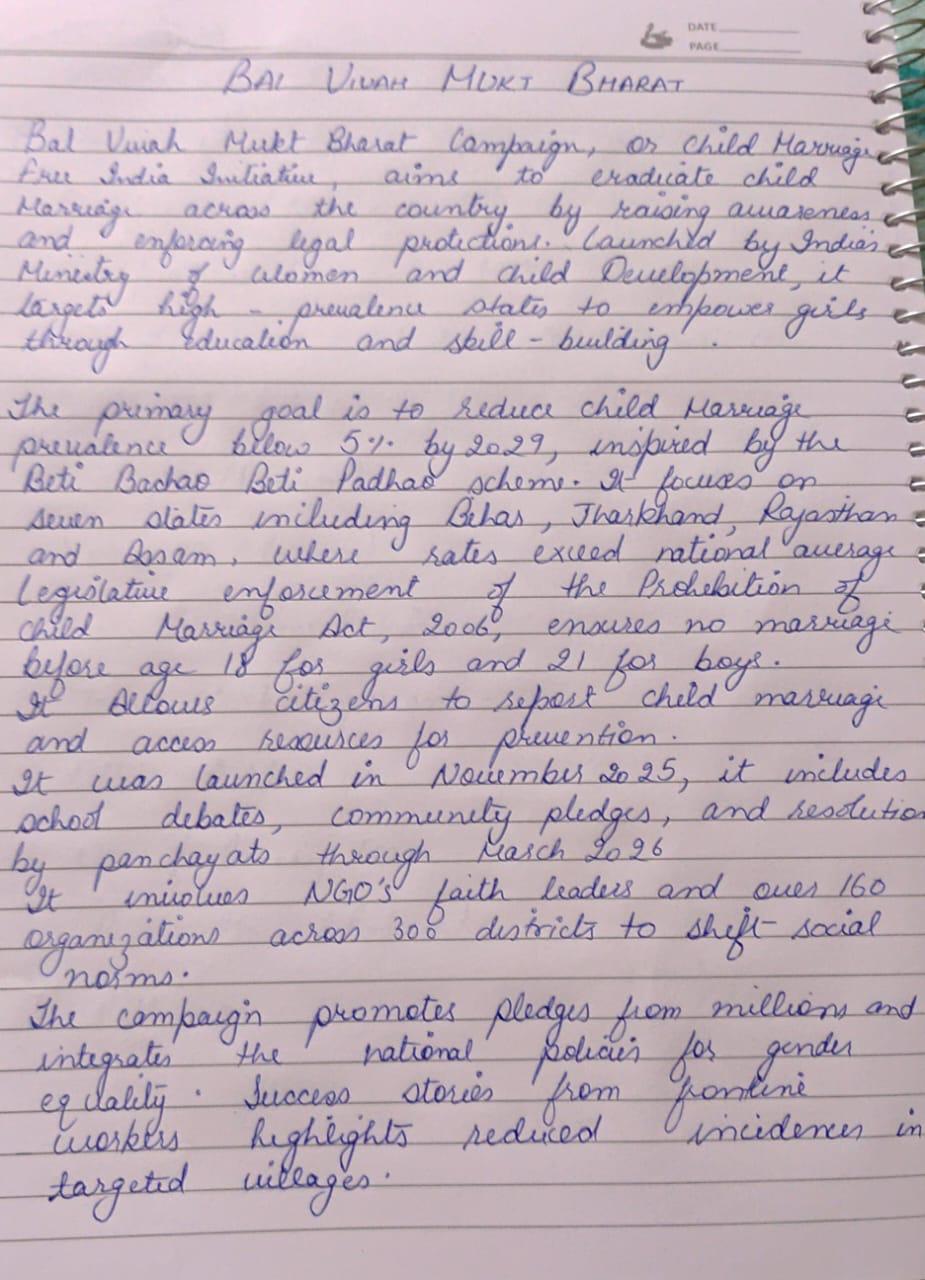 DATE
PAGE
BAL VIVAH MUKT BHARAT
Bal Vivah Mukt Bharat Campaign, or Child Marriage
Free India Initiative, aims to eradicate child
Marriage across the country by raising awareness
and enforcing legal protections. Launched by India's
Ministry of Women and Child Development, it
targets high - prevalence states to empower girls
through education and skill - building .
The primary goal is to reduce child Marriage
prevalence below 5% by 2029, inspired by the
Beti Bachao Beti Padhao scheme. It focuses on
seven states including Bihar, Jharkhand, Rajasthan
and Assam, where rates exceed national average
Legislative enforcement of the Prohibition of
Child Marriage Act, 2006, ensures no marriage
before age 18 for girls and 21 for boys.
It Allows citizens to report child marriage
and access resources for prevention.
It was launched in November 2025, it includes
school debates, community pledges, and resolution
by panchayats through March 2026
It involves NGO's faith leaders and over 160
organizations across 300 districts to shift social
norms.
The campaign promotes pledges from millions and
integrates the national policies for gender
equality. Success stories from frontline
workers highlights reduced incidences in
targeted villages.